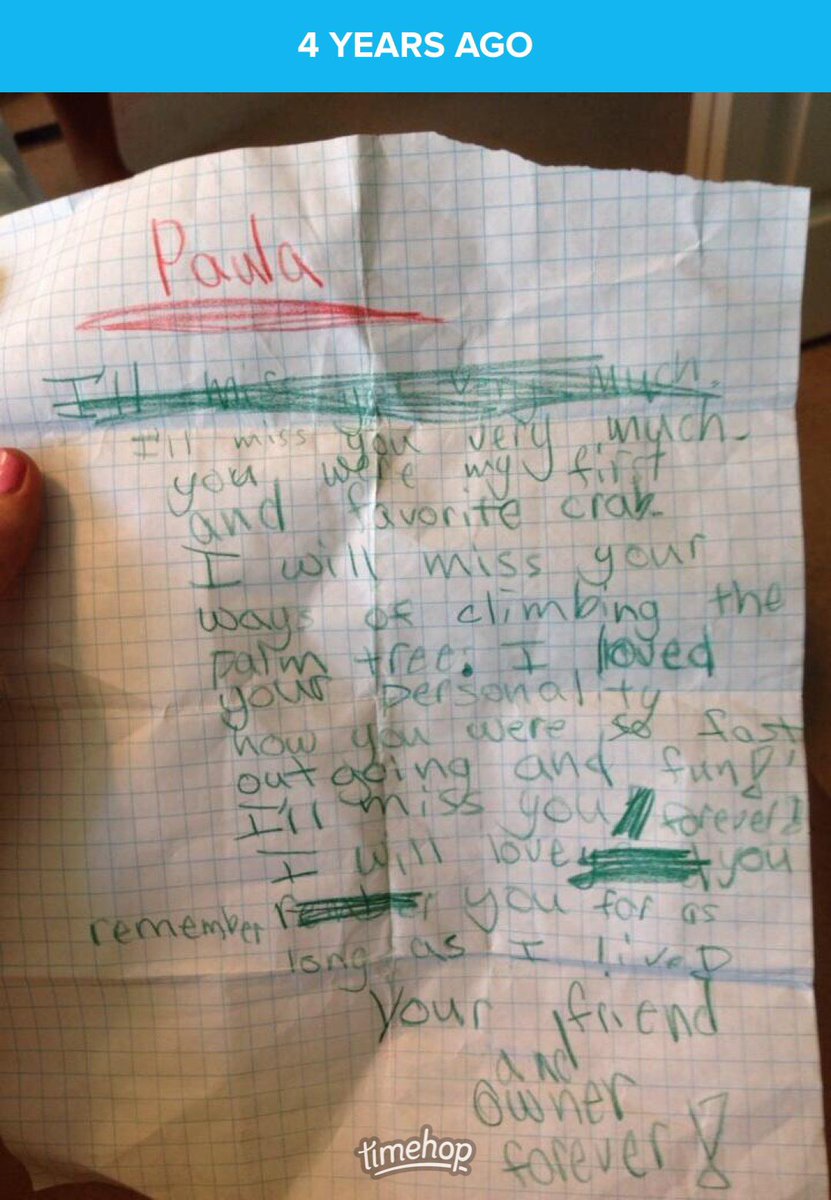 4 YEARS AGO
Paula
I'll miss you very much.
I'll miss you very much.
you were my first
and favorite crab.
I will miss your
ways of climbing the
palm tree. I loved
your personality
how you were so fast
outgoing and fun!
I'll miss you forever!
I will love you
remember you for as
long as I live!
your friend
and
owner
forever!
timehop